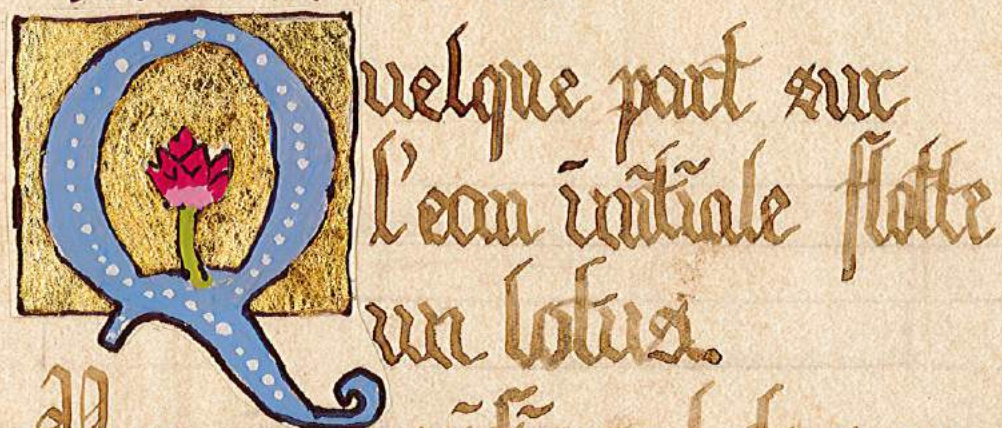 Quelque part sur
l'eau initiale flotte
un lotus.